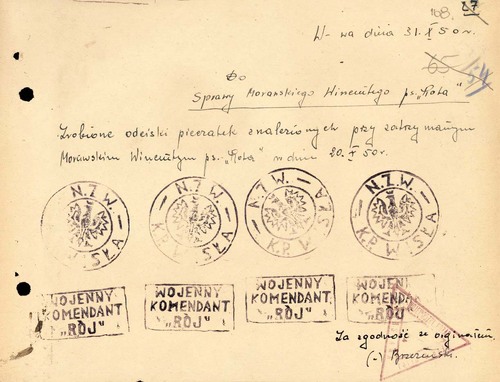 108. 27
W-wa dnia 31.X 50 r.
65
Do
Sprawy Morawskiego Wincentego ps. „Rota”
Zrobione odciski pieczątek znalezionych przy zatrzymanym
Morawskim Wincentym ps. „Rota” w dniu 20.X 50r.
– N.Z.W. –
K.P. WISŁA
– N.Z.W. –
K.P. WISŁA
– N.Z.W. –
K.P. WISŁA
– N.Z.W. –
K.P. WISŁA
WOJENNY
KOMENDANT
„RÓJ”
WOJENNY
KOMENDANT
„RÓJ”
WOJENNY
KOMENDANT
„RÓJ”
WOJENNY
KOMENDANT
„RÓJ”
Za zgodność ze orginałem
(-) Brzeziński.